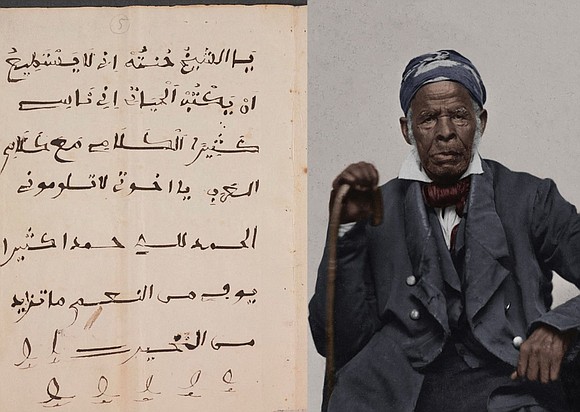 5
يا الشيخ حنته اني لا يستطيع
ان يكتب الحياتي اني ناس
كثيرا الكلام مع كلام
العرب يا اخوتي لا تلوموني
الحمد لله حمدا كثيرا
يوف من النعم ما تزايد
من الخير